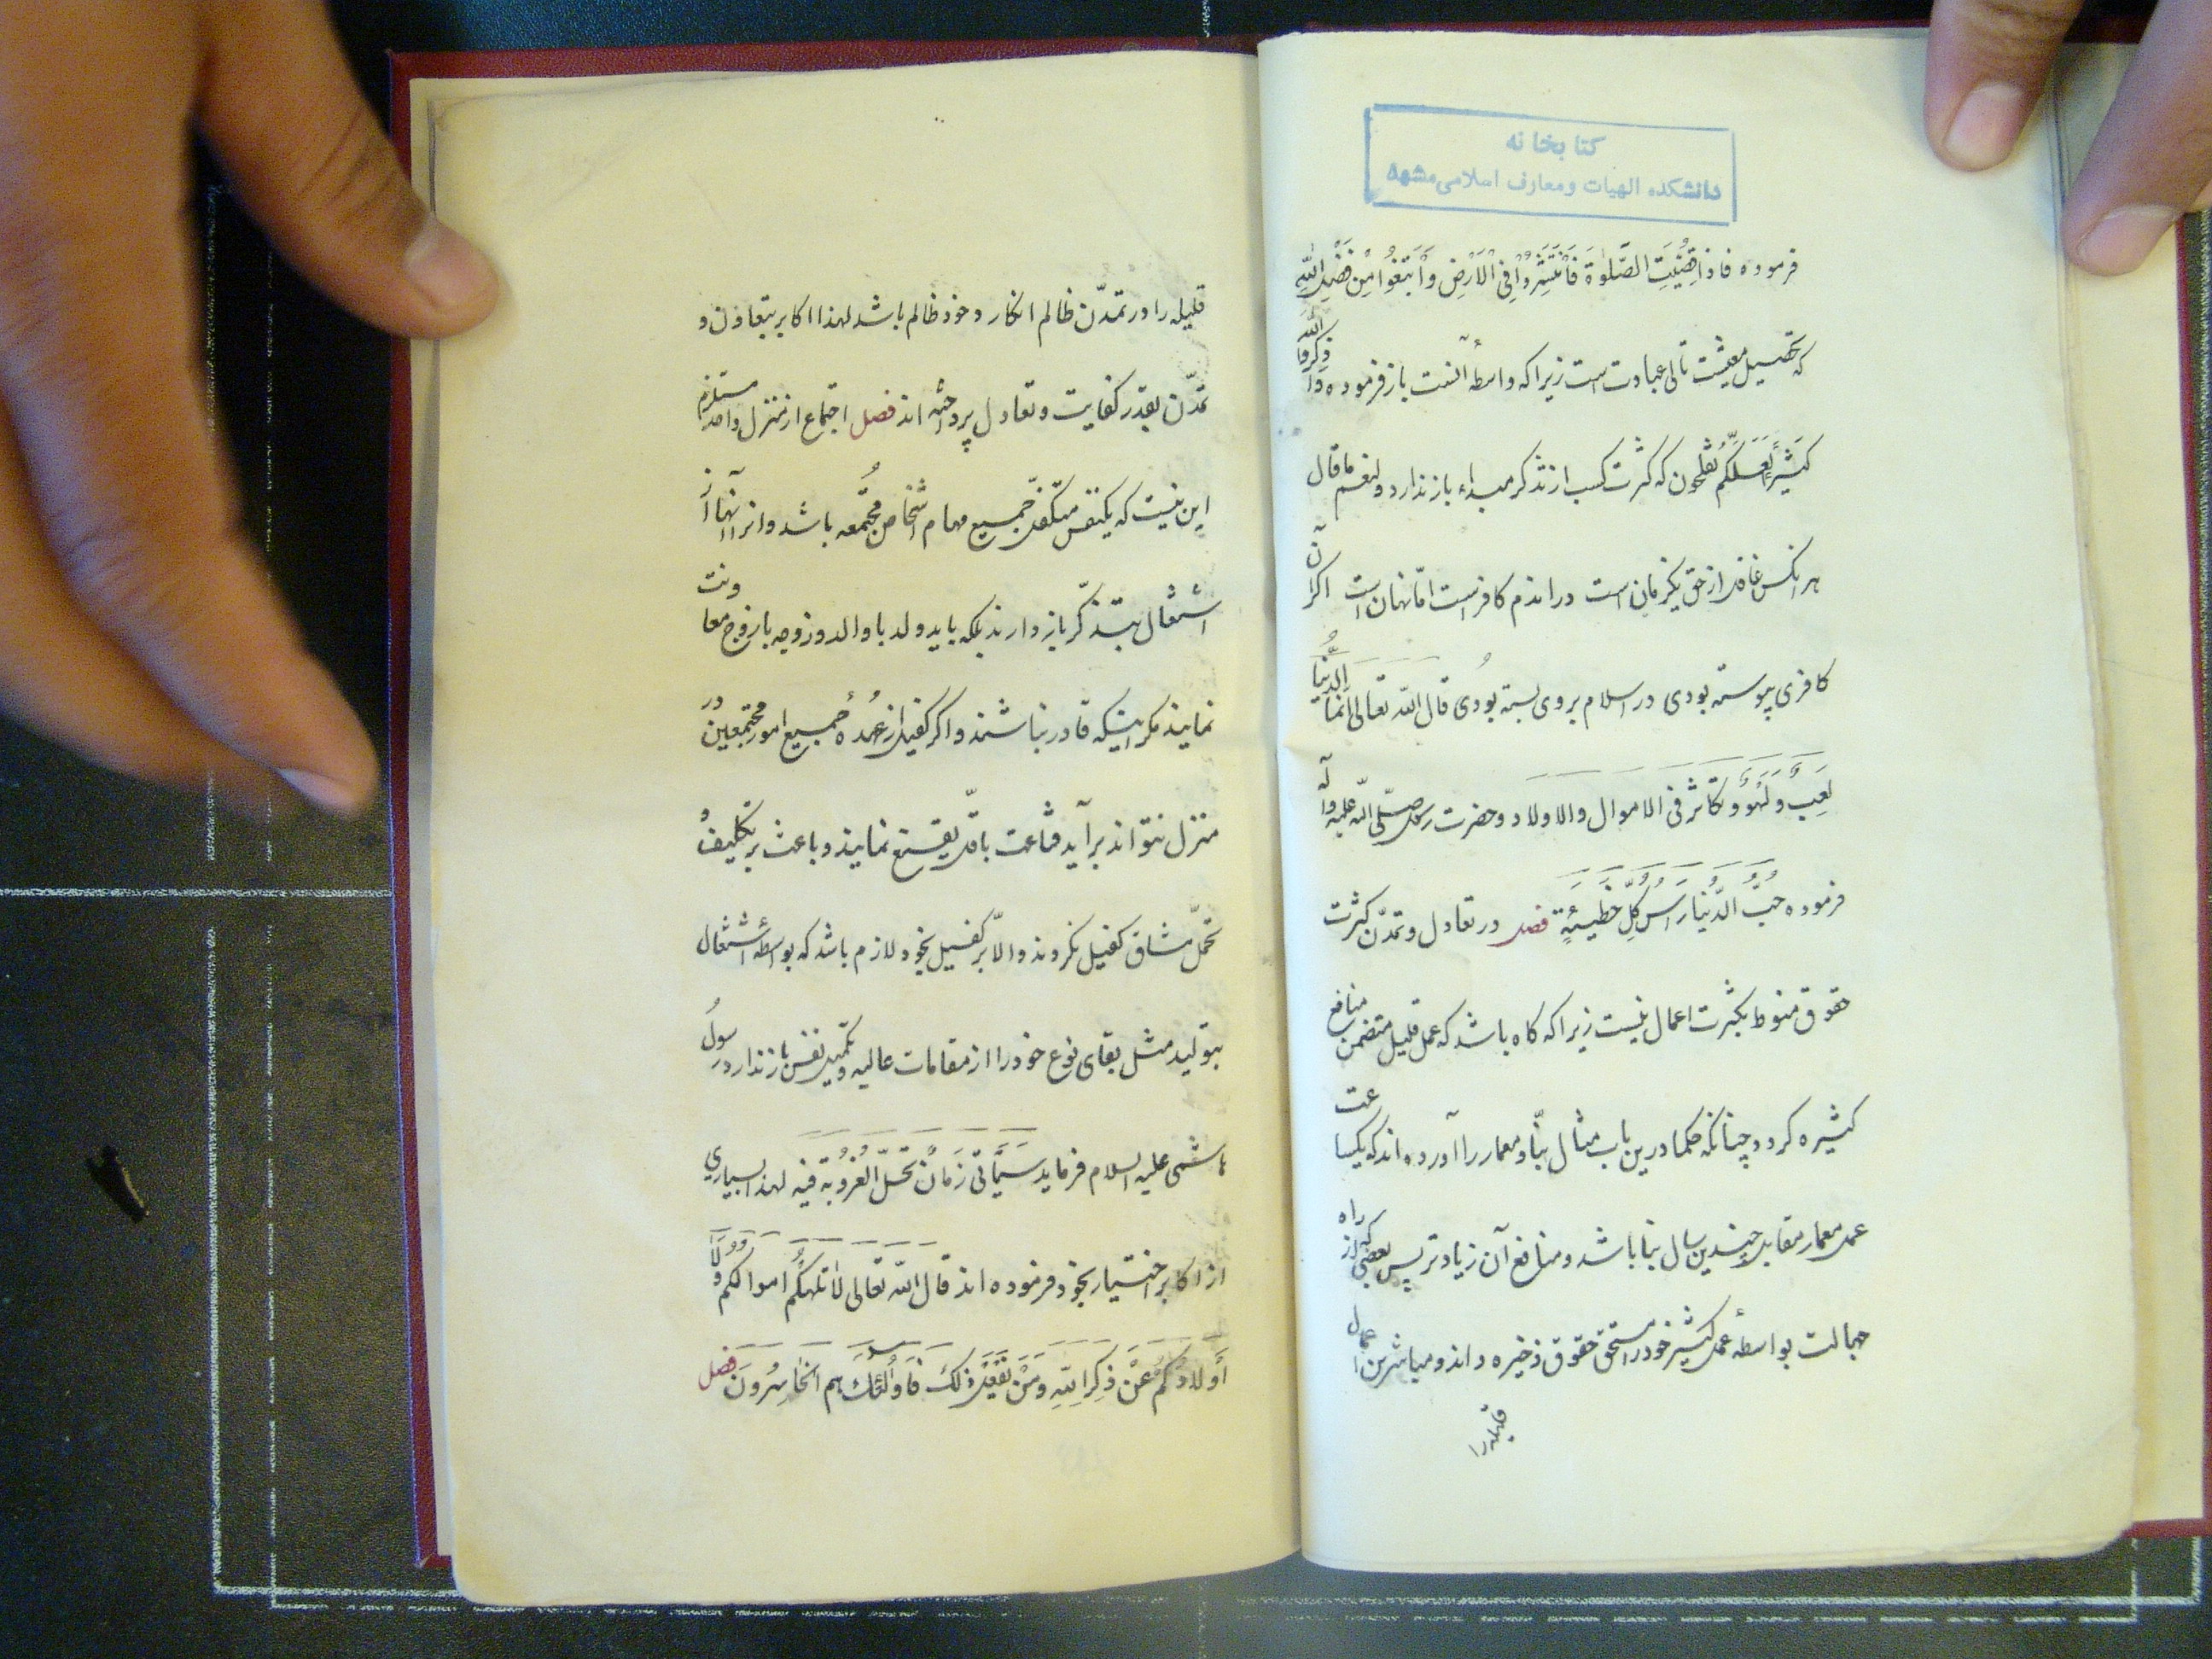 کتابخانه
دانشکده الهیات و معارف اسلامی مشهد
فرموده فاذا قُضِیَتِ الصَّلوٰةَ فَانْتَشِرُوا فِی الْاَرْضِ وَابْتَغُوا مِنْ فَضْلِ اللّٰهِ
که تحصیل معیشت تالی عبادت است زیرا که واسطهٔ آنست باز فرموده وَاذْکُرُوا اللّٰهَ
کَثیراً لَعَلَّکُم تُفلحون که کثرت کسب از تذکر مبداء باز ندارد و لنعم ما قال
هر آنکس غافل از حق یکزمان است در اندم کافر است امّا نهان است اگر آن
کافری پیوسته بودی در اسلام بروی بسته بودی قال اللّه تعالی انّما الدُّنیا
لَعِبٌ وَ لَهْوٌ و تکاثر فی الاموال والاولاد و حضرت رسول صلّی اللّه علیه و آله
فرموده حُبُّ الدُّنیا رَاسُ کُلِّ خَطیئَةٍ فصل در تعادل و تمدّن کثرت
حقوق منوط بکثرت اعمال نیست زیرا که گاه باشد که عمل قلیل متضمن منافع
کثیره گردد چنانکه حکما درین باب مثال بنّا و معمار را آورده اند که یکساعت
عمل معمار مقابل چندین سال بنا باشد و منافع آن زیادتر پس بعضی که از راه
جهالت بواسطهٔ عمل کثیر خود را مستحق حقوق ذخیره داند و مباشرین اعمال
قلیله را
قلیله را در تمدّن ظالم انکارد خود ظالم باشد لهذا اکابر بتعاون و
تمدّن بقدر کفایت و تعادل پرداخته اند فصل اجتماع از منزل واحد مستلزم
این نیست که یکنفس متکفل جمیع مهام اشخاص مُجتمعه باشد و انرا آنها از
اشتغال بتذکّر باز دارند بلکه باید ولد با والد و زوجه با زوج معاونت
نمایند مگر اینکه قادر نباشند و اگر کفیل از عُهدهٔ جمیع امور مجتمعین در
منزل نتواند برآید قناعت باقلّ یقنع نمایند و باعث بر تکلیف و
تحمّل مشاق کفیل نگردند والاّ بر کفیل بخود لازم باشد که بواسطهٔ اشتغال
بتولید مثل بقای نوع خود را از مقامات عالیه و تکمیل نفس باز ندارد رسول
هاشمی علیه السلام فرماید سَیَأتی زَمانٌ تَحلّ العُزوبَة فیه لهذا بسیاری
از اکابر اختیار تجرّد فرموده اند قال اللّه تعالی لا تُلهِکُم اموالکم وَلا
اَولادُکُم عَنْ ذِکْرِ اللّهِ وَمَنْ یَفْعَلْ ذلِکَ فَاُولئکَ هم الخاسِرُونَ فصل